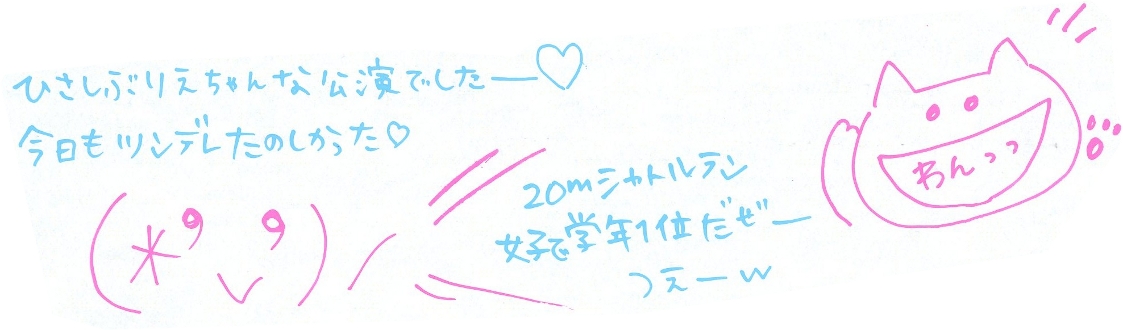 ひさしぶりえちゃんな公演でしたー♡
今日もツンデレたのしかった♡
(*' ')/
20mシャトルラン
女子で学年1位だぜー
つえーw
わんっっ